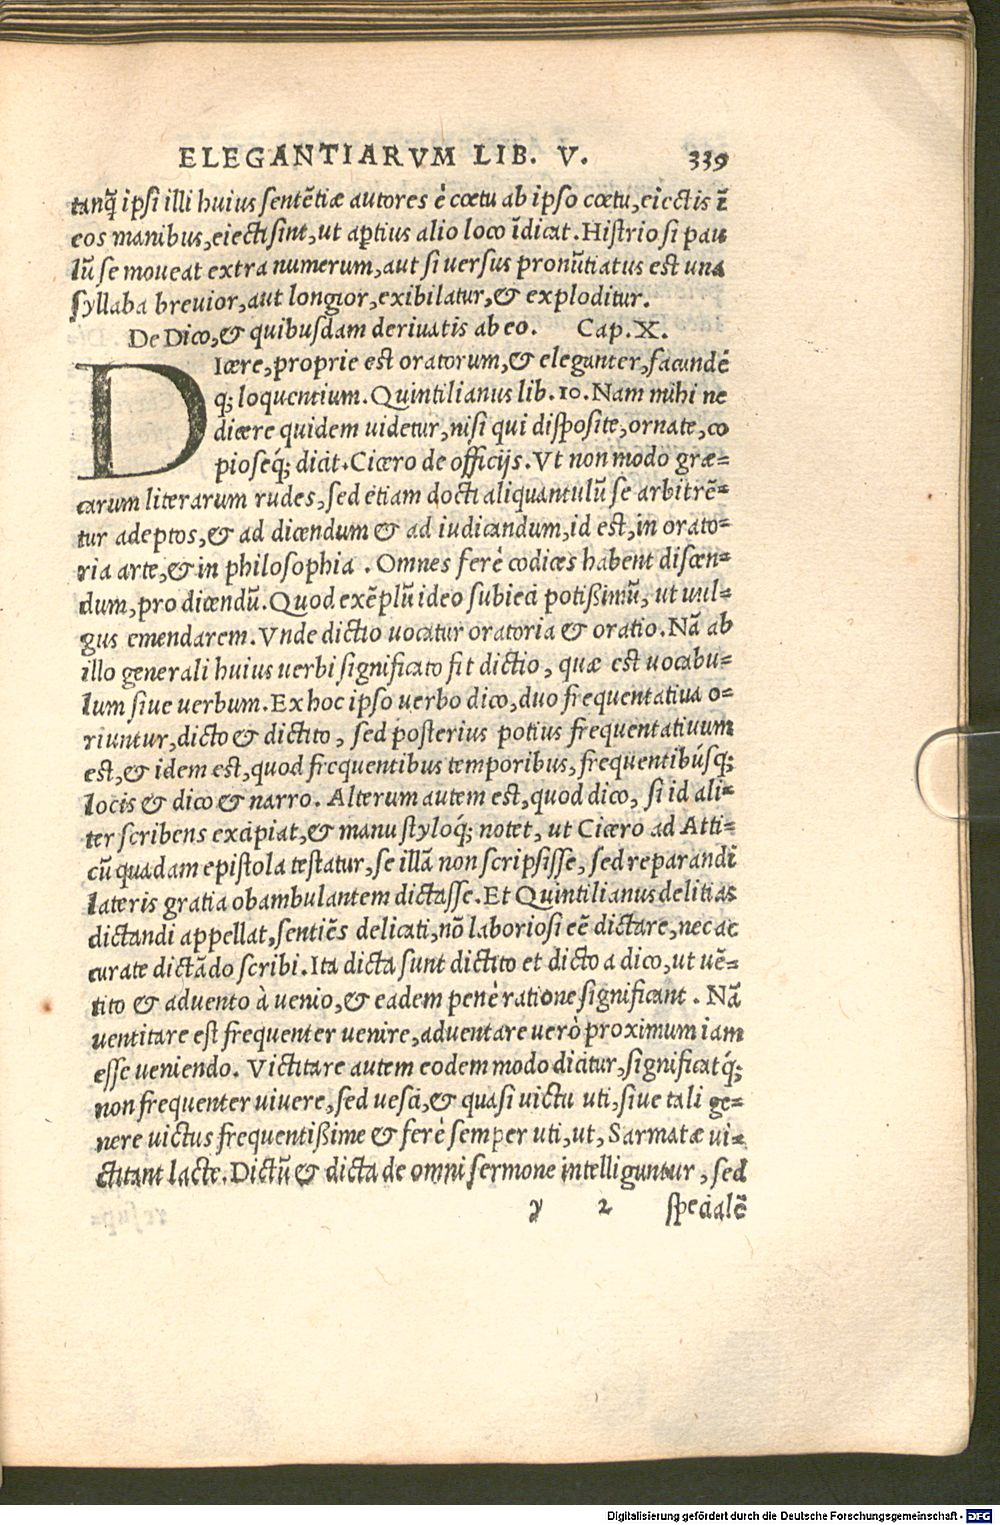 ELEGANTIARVM LIB. V. 339
tanq̃ ipsi illi huius sentẽtiæ autores è cœtu ab ipso cœtu, eiectis ĩ
eos manibus, eiecti sint, ut aptius alio loco ĩdicat. Histrio si pau
lũ se moueat extra numerum, aut si uersus pronũtiatus est una
syllaba breuior, aut longior, exibilatur, & exploditur.
De Dico, & quibusdam deriuatis ab eo. Cap. X.
DIcere, proprie est oratorum, & eleganter, facundé
q; loquentium. Quintilianus lib. 10. Nam mihi ne
dicere quidem uidetur, nisi qui disposite, ornate, co
pioseq́; dicit. Cicero de officijs. Vt non modo græ=
carum literarum rudes, sed etiam docti aliquantulũ se arbitrẽ=
tur adeptos, & ad dicendum & ad iudicandum, id est, in orato=
ria arte, & in philosophia. Omnes ferè codices habent discen=
dum, pro dicendũ. Quod exẽplũ ideo subieci potißimũ, ut uul=
gus emendarem. Vnde dictio uocatur oratoria & oratio. Nã ab
illo generali huius uerbi significato fit dictio, quæ est uocabu=
lum siue uerbum. Ex hoc ipso uerbo dico, duo frequentatiua o=
riuntur, dicto & dictito, sed posterius potius frequentatiuum
est, & idem est, quod frequentibus temporibus, frequentibúsq;
locis & dico & narro. Alterum autem est, quod dico, si id ali=
ter scribens excipiat, & manu styloq́; notet, ut Cicero ad Atti=
cũ quadam epistola testatur, se illã non scripsisse, sed reparandi
lateris gratia obambulantem dictasse. Et Quintilianus delitias
dictandi appellat, sentiẽs delicati, nõ laboriosi eẽ dictare, nec ac
curate dictãdo scribi. Ita dicta sunt dictito et dicto a dico, ut uẽ=
tito & aduento à uenio, & eadem penè ratione significant. Nã
uentitare est frequenter uenire, aduentare uerò proximum iam
esse ueniendo. Victitare autem eodem modo dicitur, significatq́;
non frequenter uiuere, sed uesci, & quasi uictu uti, siue tali ge=
nere uictus frequentißime & ferè semper uti, ut, Sarmatæ ui=
ctitant lacte. Dictũ & dicta de omni sermone intelliguntur, sed
y 2 specialẽ
Digitalisierung gefördert durch die Deutsche Forschungsgemeinschaft - DFG